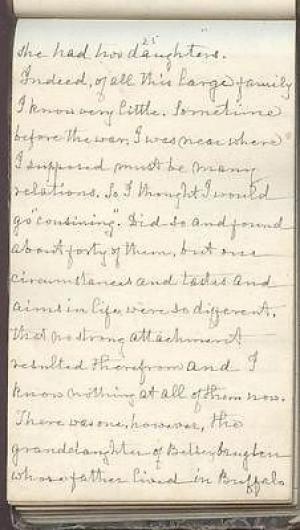 25
she had two daughters.
Indeed, of all this large family
I know very little. Sometime
before the war, I was near where
I supposed must be many
relations. So I thought I would
go "cousining". Did so and found
about forty of them, but our
circumstances and tastes and
aims in life, were so different,
that no strong attachment
resulted therefrom and I
know nothing at all of them now.
There was one, however, the
granddaughter of Betsey
whose father lived in Buffalo